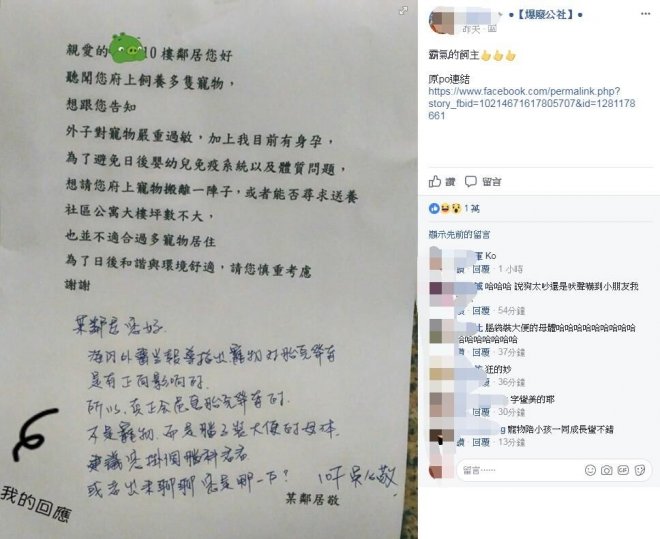 親愛的 10 樓鄰居您好
聽聞您府上飼養多隻寵物，
想跟您告知
外子對寵物嚴重過敏，加上我目前有身孕，
為了避免日後嬰幼兒免疫系統以及體質問題，
想請您府上寵物搬離一陣子，或者能否尋求送養
社區公寓大樓坪數不大，
也並不適合過多寵物居住
為了日後和諧與環境舒適，請您慎重考慮
謝謝
某鄰居您好.
海內外醫學報導指出寵物對胎兒孕育
是有正向影響的.
所以, 真正會危害胎兒孕育的.
不是寵物. 而是腦子裝大便的母体.
建議您掛個腦科看看.
或者出來聊聊您是哪一下? 10F 吳公敬.
某鄰居敬
我的回應
●【爆廢公社】●
昨天
霸氣的飼主👍👍👍
原po連結
https://www.facebook.com/permalink.php?
story_fbid=10214671617805707&id=1281178
661
讚 留言
1 萬
顯示先前的留言
Ko
讚 · 回覆 · 1 小時
哈哈哈 說狗太吵還是吠聲嚇到小朋友我
讚 · 回覆 · 54分鐘
腦袋裝大便的母體哈哈哈哈哈哈哈哈哈
哈哈哈哈哈哈哈哈
讚 · 回覆 · 37分鐘
狂的妙
讚 · 回覆 · 36分鐘
字蠻美的耶
讚 · 回覆 · 19分鐘
g 寵物陪小孩一同成長蠻不錯
讚 · 回覆 · 13分鐘
留言......